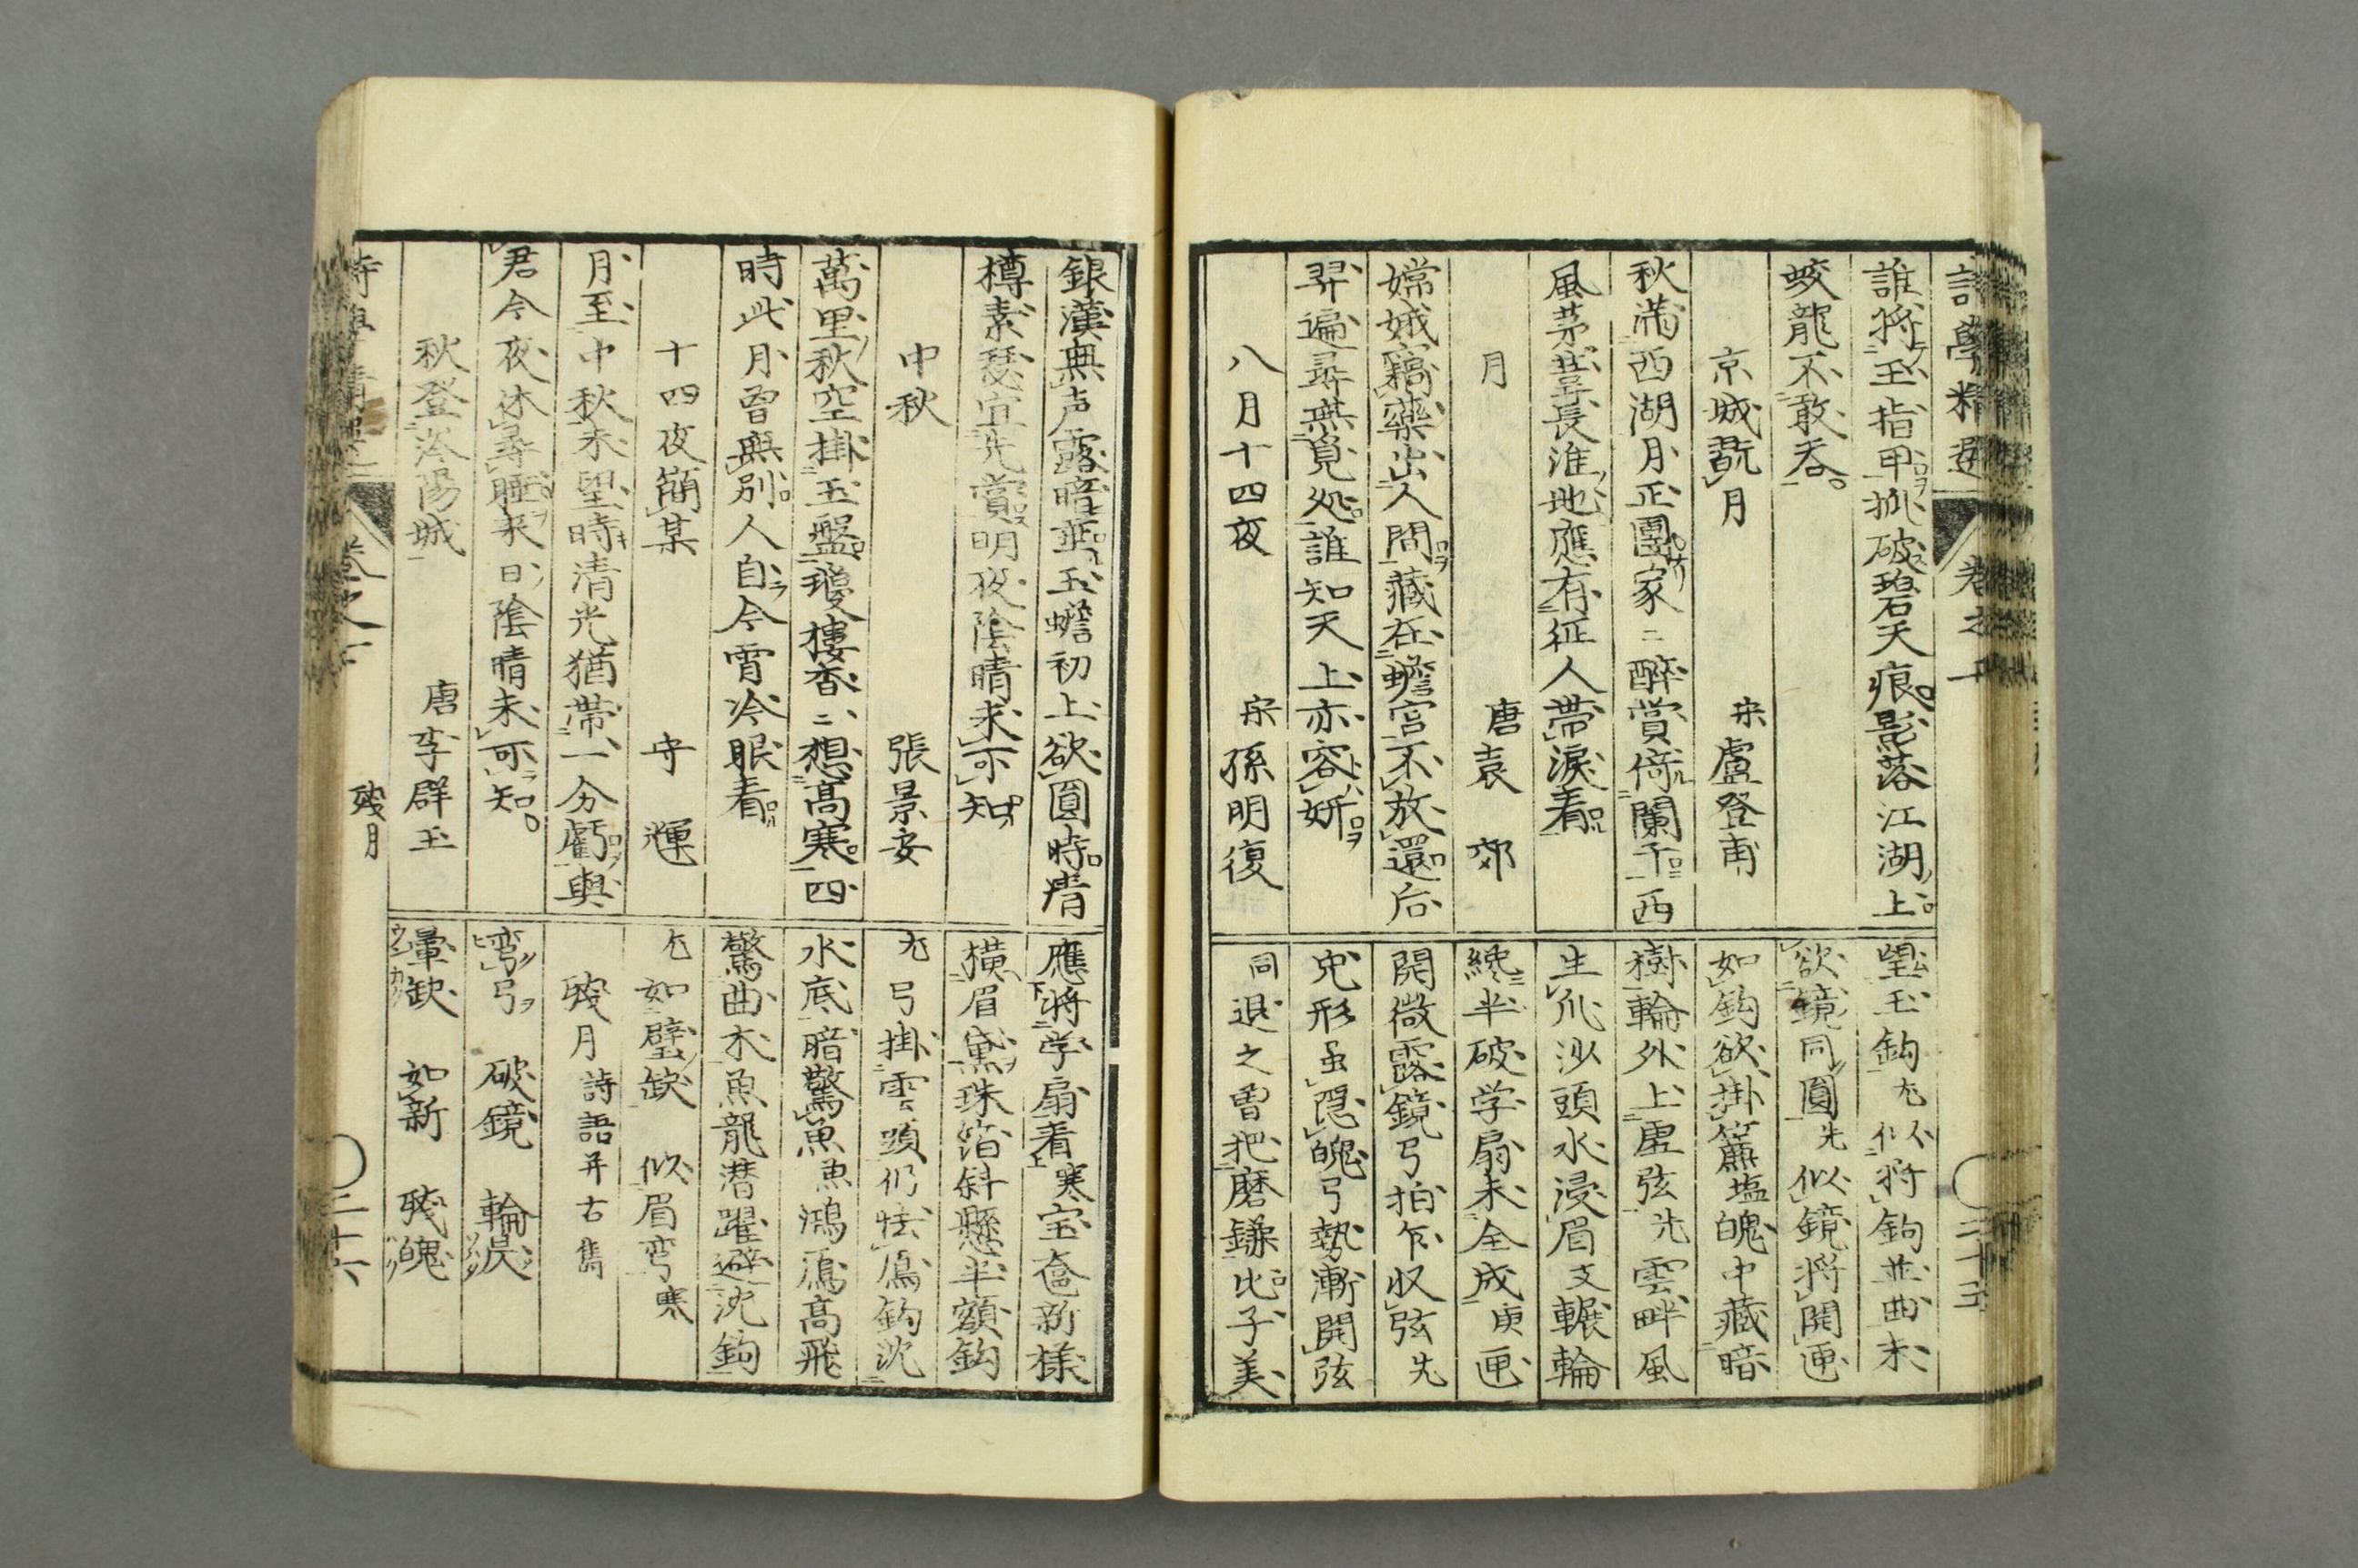 誰將玉指甲抓破碧天痕影落江湖上
蛟龍不敢吞
京城翫月　宋盧登甫
秋滿西湖月正團家二醉賞倚闌干西
風茅葦長淮地應有征人帶淚看
月　唐袁郊
嫦娥竊藥出人間藏在蟾宮不放還后
羿遍尋無覓処誰知天上亦容姸
八月十四夜　宋孫明復
望玉鈎 尤 似將鈎並曲未
欲鏡同圓 先 似鏡將開匣
如鈎欲掛簾塩魄中藏暗
樹輪外上虛弦 先 雲畔風
生爪沙頭水浸眉文輾輪
纔半破学扇未全成 庚 匣
開微露鏡弓拍乍収弦 先
兎形虽隠魄弓勢漸開弦
同退之曽把磨鎌比子美
銀漢無声露暗垂玉蟾初上欲圓時淸
樽素瑟宜先賞明夜陰晴未可知
中秋　張景安
萬里秋空掛玉盤瓊樓香二想高寒四
時此月曾無別人自今霄冷眼看
十四夜簡某　守暹
月至中秋未望時清光猶帶一分虧與
君今夜休尋睡来日陰晴未可知
秋登涔陽城　唐李群玉
應將学扇看寒宝奩新樣
橫眉黛珠箔斜懸半額鈎
尤 弓掛雲頭仍怯鴈鈎沈
水底暗驚魚 魚 鴻鴈高飛
驚曲木魚龍潜躍避沈鈎
尤 如璧缺 似眉彎 寒
殘月 詩語并古雋
彎弓 破鏡 輪昃
暈缺 如新 殘魄
殘月
二十六